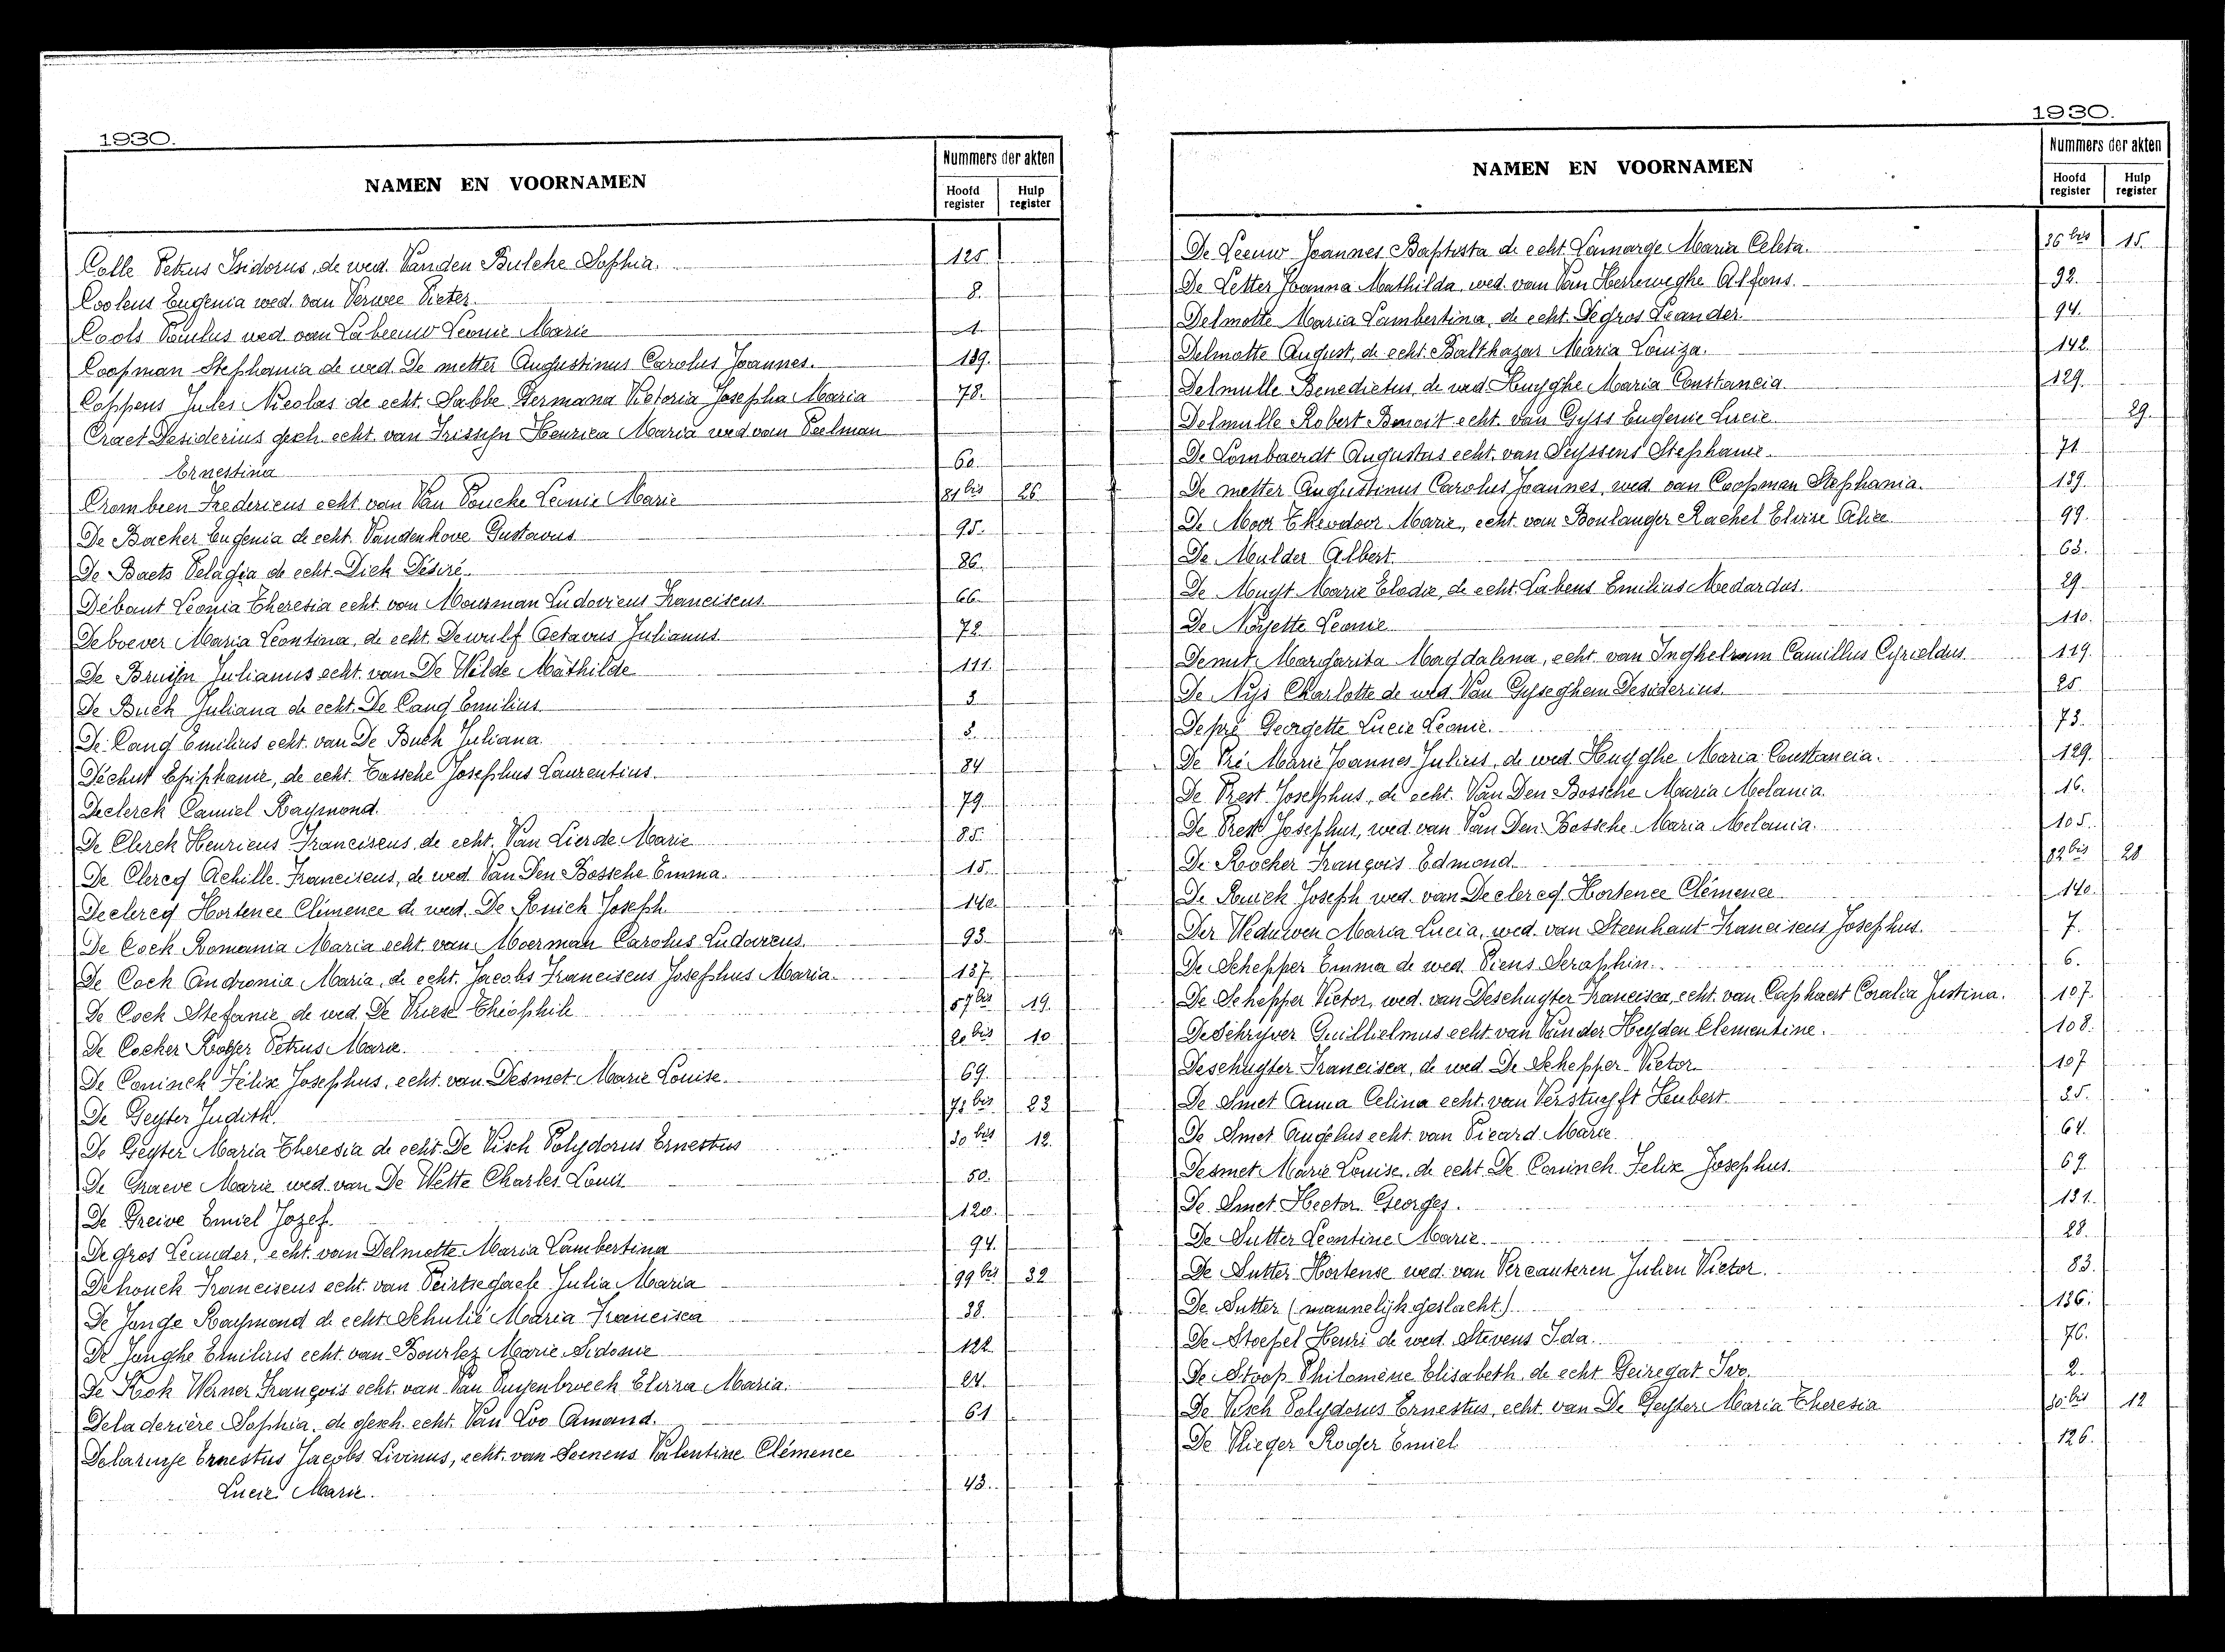 1930.
NAMEN EN VOORNAMEN
Nummers der akten
Hoofd register
Hulp register
Colle Petrus Isidorus, de wed. Vanden Bulcke Sophia. 125.
Coolens Eugenia wed. van Verwee Pieter. 8.
Cools Paulus wed. van Labeeuw Leonie Marie 1.
Coopman Stephania de wed. De metter Augustinus Carolus Joannes. 139.
Coppens Jules Nicolas de echt. Sabbe Germana Victoria Josepha Maria 78.
Craet Desiderius gesch. echt. van Frissyn Henrica Maria wed van Poelman
Ernestina 60.
Crombeen Fredericus echt. van Van Poucke Leonie Marie 81 bis 26
De Backer Eugenia de echt. Vandenhove Gustavus 95.
De Baets Pelagia de echt. Dick Désiré. 86.
Débaut Leonia Theresia echt. van Mourman Ludovicus Franciscus 66
Deboever Maria Leontina, de echt. Dewulf Octavus Julianus 72
De Bruijn Julianus echt. van De Wilde Mathilde 111.
De Buck Juliana de echt. De Cang Emilius 3
De Cang Emilius echt. van De Buck Juliana 3.
Déchut Epiphanie, de echt. Tassche Josephus Laurentius. 84
Declerck Camiel Raymond. 79
De Clerck Henricus Franciscus, de echt. Van Lierde Marie 85.
De Clercq Achille Franciscus, de wed. Van Den Bossche Emma. 15.
Declercq Hortence Clémence de wed. De Runick Joseph 140.
De Cock Romania Maria echt. van Moerman Carolus Ludovicus. 93.
De Cock Andronia Maria, de echt. Jacobs Franciscus Josephus Maria. 137.
De Cock Stefanie de wed. De Vriese Théophile 57 bis 19.
De Cocker Roger Petrus Marie. 20 bis 10
De Coninck Félix Josephus, echt. van Desmet Marie Louise. 69.
De Geyter Judith. 71 bis 23
De Geyter Maria Theresia de echt. De Visch Polydorus Ernestus 30 bis 12.
De Graeve Marie wed. van De Wette Charles Louis 50.
De Greive Emiel Jozef. 120.
Degros Leander, echt. van Delmotte Maria Lambertina 94.
Dehouck Franciscus echt. van Peirtsegaele Julia Maria 99 bis 32
De Jonge Raymond de echt. Schulié Maria Francisca 38.
De Jonghe Emilius echt. van Bourlez Marie Sidonie 122
De Kok Werner François echt. van Van Puyenbroeck Elvira Maria. 24.
Deladerière Sophia, de gesch. echt. Van Loo Amand. 61
Delaruye Ernestus Jacobs Livinus, echt. van Soenens Valentine Clémence
Lucie Marie. 43.
1930.
NAMEN EN VOORNAMEN
Nummers der akten
Hoofd register
Hulp register
De Leeuw Joannes Baptista de echt. Lamarge Maria Celeta. 36 bis 15.
De Letter Joanna Mathilda, wed. van Van Herreweghe Alfons. 92.
Delmotte Maria Lambertina, de echt. Degros Leander 94.
Delmotte August, de echt. Balthazar Maria Louiza. 142.
Delmulle Benedictus, de wed. Huyghe Maria Constancia 129.
Delmulle Robert Benoit echt. van Gyss Eugenie Lucie 29.
De Lombaerdt Augustus echt. van Seyssens Stephanie. 71
De metter Augustinus Carolus Joannes, wed. van Coopman Stephania. 139.
De Moor Theodoor Marie, echt. van Boulanger Rachel Elvire Alice 99.
De Mulder Albert. 63.
De Muyt Marie Elodie, de echt. Labens Emilius Medardus. 29
De Noyette Leonie 110.
Denut Margarita Magdalena, echt. van Inghelram Camillus Cyrieldus 119.
De Nijs Charlotte de wed. Van Gyseghem Desiderius. 25
Depré Georgette Lucie Leonie. 73.
De Pré Marie Joannes Julius, de wed. Huyghe Maria Constancia. 129.
De Prest Josephus, de echt. Van Den Bossche Maria Melania 16.
De Prest Josephus, wed. van Van Den Bossche Maria Melania. 105.
De Rocker François Edmond 82 bis 28
De Runick Joseph wed. van Declercq Hortence Clémence 140.
Der Weduwen Maria Lucia, wed. van Steenhaut Franciscus Josephus. 7.
De Schepper Emma de wed. Piens Seraphin. 6.
De Schepper Victor, wed. van Deschuyter Francisca, echt. van Caphaert Coralia Justina. 107.
De Schryver Guillielmus echt. van Van der Heyden Clementine. 108.
Deschuyter Francisca, de wed. De Schepper Victor. 107
De Smet Anna Celina echt. van Verstuyft Heubert. 35.
De Smet Angelus echt. van Picard Marie. 64.
Desmet Marie Louise, de echt. De Coninck Felix Josephus 69
De Smet Hector Georges. 131.
De Sutter Leontine Marie. 28.
De Sutter Hortense wed. van Vercauteren Julien Victor. 83.
De Sutter (mannelijk geslacht) 136.
De Stoepel Henri de wed. Stevens Ida. 76.
De Stoop Philomène Elisabeth, de echt. Geiregat Ivo. 2.
De Visch Polydorus Ernestus, echt. van De Geyter Maria Theresia 30 bis 12
De Vlieger Roger Emiel 126.